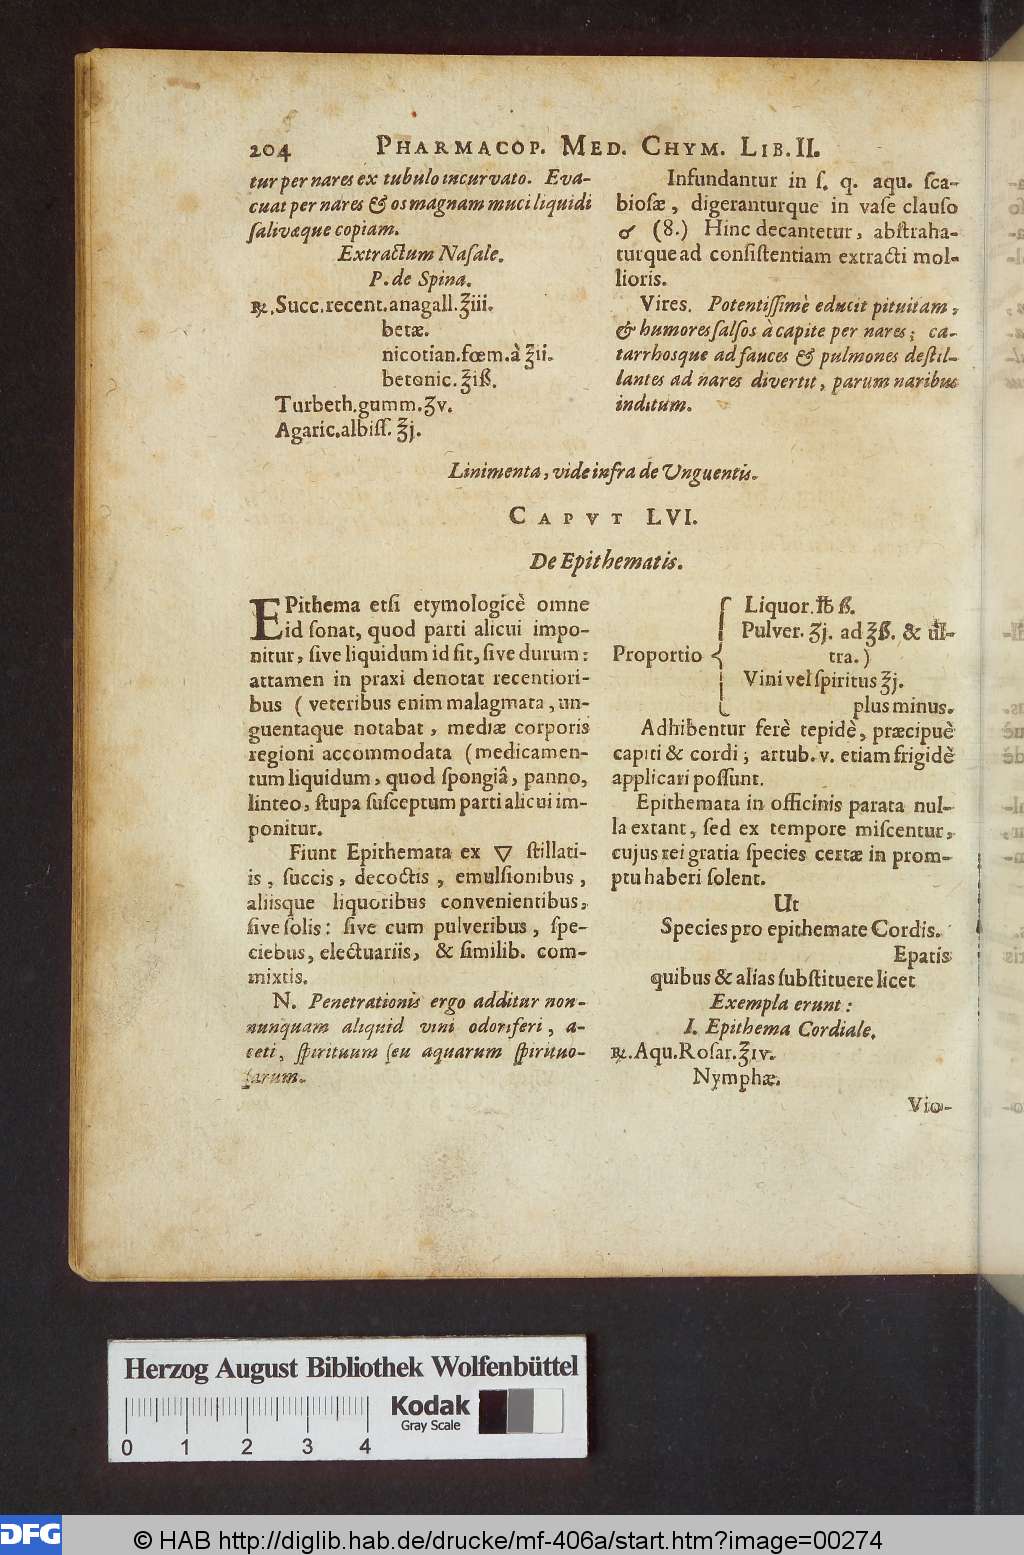 204 PHARMACOP. MED. CHYM. LIB. II.
tur per nares ex tubulo incurvato. Eva-
cuat per nares & os magnam muci liquidi
ſalivæque copiam.
Extractum Naſale.
P. de Spina.
℞. Succ. recent. anagall. ℥iii.
betæ.
nicotian. fœm. à ℥ii.
betonic. ℥iß.
Turbeth. gumm. ʒv.
Agaric. albiſſ. ℥j.
Infundantur in ſ. q. aqu. ſca-
bioſæ, digeranturque in vaſe clauſo
♂ (8.) Hinc decantetur, abſtraha-
turque ad conſiſtentiam extracti mol-
lioris.
Vires. Potentiſſimè educit pituitam,
& humores ſalſos à capite per nares; ca-
tarrhosque ad fauces & pulmones deſtil-
lantes ad nares divertit, parum naribus
inditum.
Linimenta, vide infra de Unguentis.
CAPVT LVI.
De Epithematis.
EPithema etſi etymologicè omne
id ſonat, quod parti alicui impo-
nitur, ſive liquidum id ſit, ſive durum:
attamen in praxi denotat recentiori-
bus ( veteribus enim malagmata, un-
guentaque notabat, mediæ corporis
regioni accommodata (medicamen-
tum liquidum, quod ſpongiâ, panno,
linteo, ſtupa ſuſceptum parti alicui im-
ponitur.
Fiunt Epithemata ex 🜄 ſtillati-
is, ſuccis, decoctis, emulſionibus,
aliisque liquoribus convenientibus,
ſive ſolis: ſive cum pulveribus, ſpe-
ciebus, electuariis, & ſimilib. com-
mixtis.
N. Penetrationis ergo additur non-
nunquam aliquid vini odoriferi, a-
ceti, ſpirituum ſeu aquarum ſpirituo-
ſarum.
Liquor. ℔ ß.
Pulver. ʒj. ad ℥ß. & ul-
Proportio { tra.)
Vini vel ſpiritus ℥j.
plus minus.
Adhibentur ferè tepidè, præcipuè
capiti & cordi; artub. v. etiam frigidè
applicari poſſunt.
Epithemata in officinis parata nul-
la extant, ſed ex tempore miſcentur,
cujus rei gratia ſpecies certæ in prom-
ptu haberi ſolent.
Ut
Species pro epithemate Cordis.
Epatis
quibus & alias ſubſtituere licet
Exempla erunt:
I. Epithema Cordiale.
℞. Aqu. Roſar. ℥iv.
Nymphæ.
Vio-
Herzog August Bibliothek Wolfenbüttel
Kodak
Gray Scale
0 1 2 3 4
DFG © HAB http://diglib.hab.de/drucke/mf-406a/start.htm?image=00274